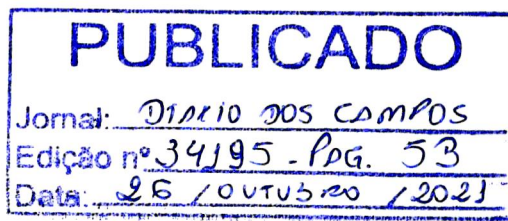 PUBLICADO
Jornal: DIARIO DOS CAMPOS
Edição nº 34195 - PAG. 5B
Data: 26 / OUTUBRO / 2021